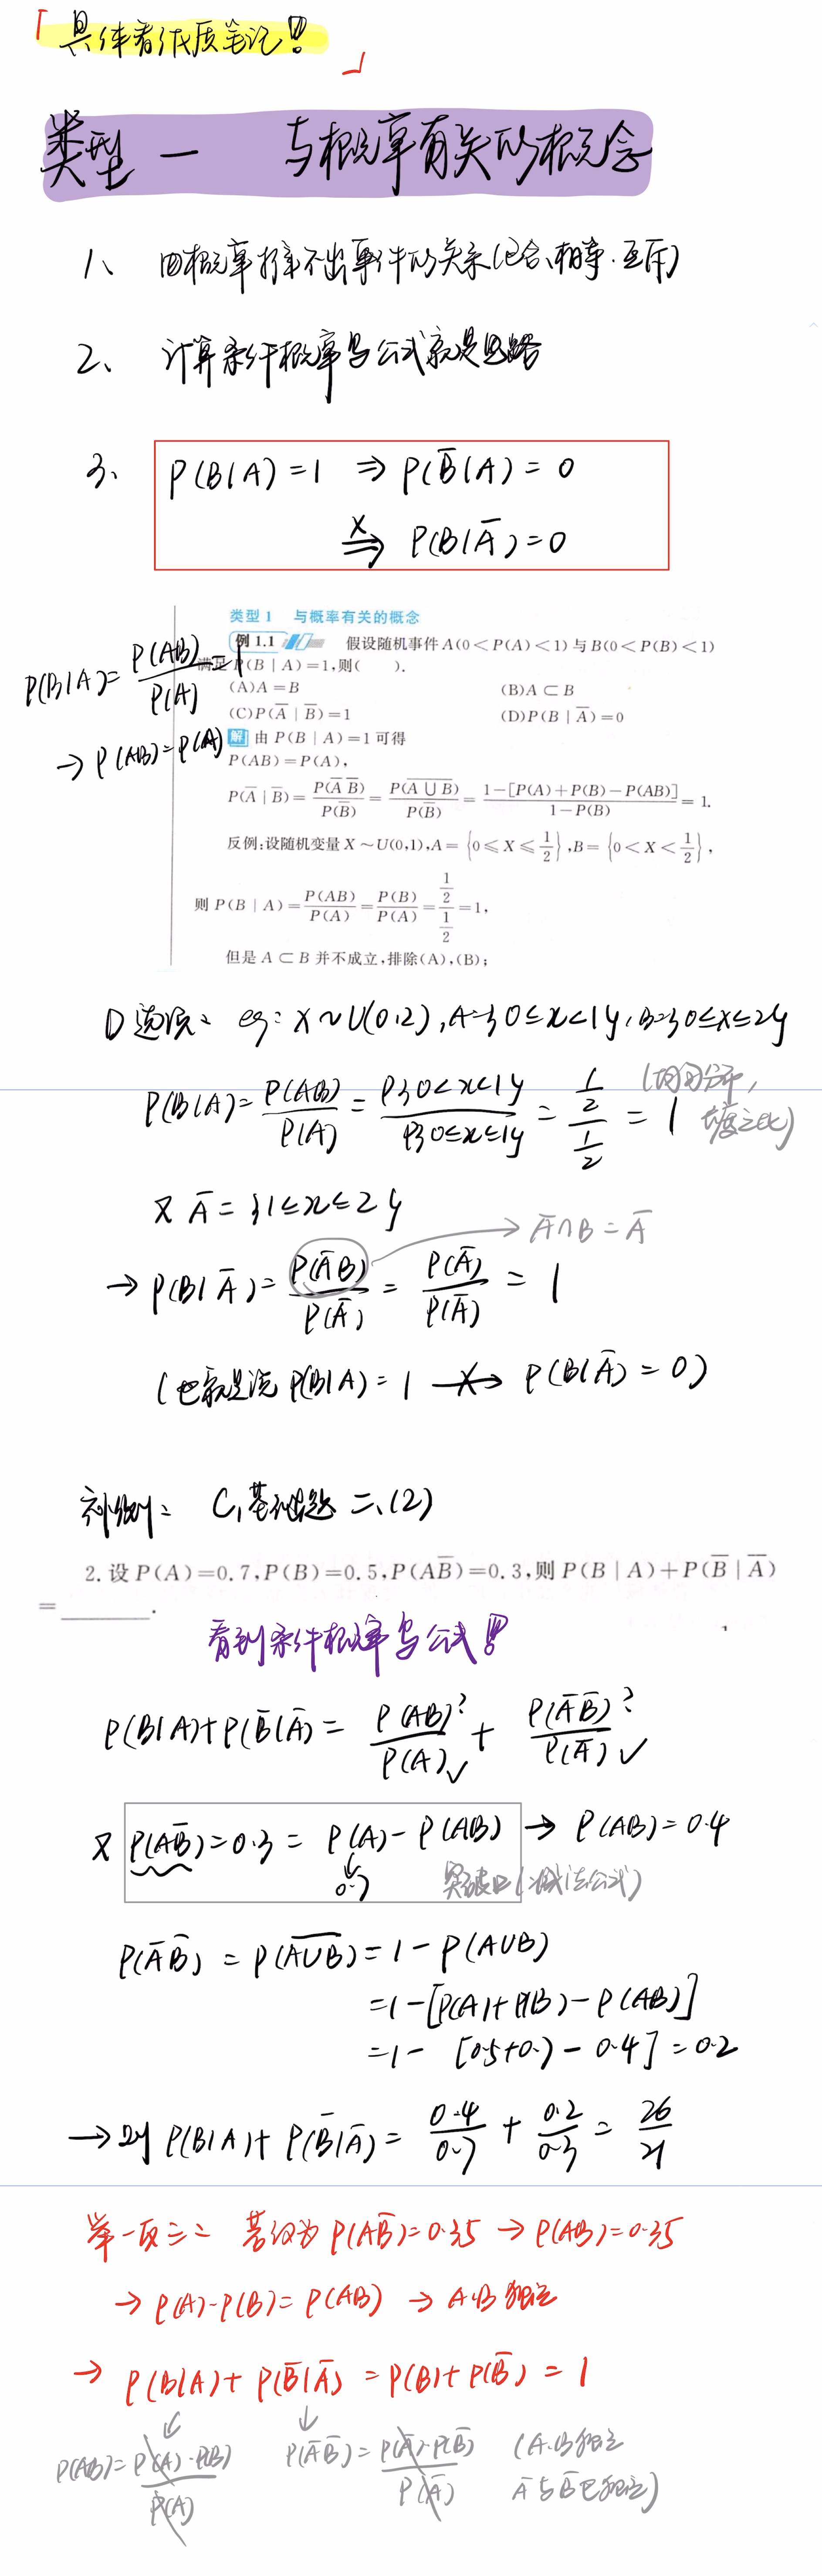 「具体看纸质笔记!!」
类型一 与概率有关的概念
1、 由概率推不出事件的关系(包含、相等、互斥)
2、 计算条件概率写公式就是思路
3、 P(B|A)=1 ⇒ P(B̅|A)=0
⇏ P(B|A̅)=0
类型1 与概率有关的概念
例1.1 假设随机事件A(0<P(A)<1)与B(0<P(B)<1)
满足P(B|A)=1,则( ).
(A)A=B (B)A⊂B
(C)P(A̅|B̅)=1 (D)P(B|A̅)=0
P(B|A)=P(AB)/P(A)=1
→ P(AB)=P(A)
解 由P(B|A)=1可得
P(AB)=P(A),
P(A̅|B̅)=P(A̅ B̅)/P(B̅)=P(\overline{A∪B})/P(B̅)=1-[P(A)+P(B)-P(AB)]/1-P(B)=1.
反例:设随机变量X~U(0,1),A={0≤X≤1/2},B={0<X<1/2},
则P(B|A)=P(AB)/P(A)=P(B)/P(A)=(1/2)/(1/2)=1,
但是A⊂B并不成立,排除(A),(B);
D选项: eg: X~U(0,2),A={0≤x<1},B={0≤x≤2}
P(B|A)=P(AB)/P(A)=P{0<x<1}/P{0≤x≤1}=(1/2)/(1/2)=1 (均匀分布,
长度之比)
又 A̅={1≤x≤2}
→ A̅∩B=A̅
→ P(B|A̅)=P(A̅B)/P(A̅)=P(A̅)/P(A̅)=1
(也就是说 P(B|A)=1 ↛ P(B|A̅)=0)
C,基础题 二、(2)
2. 设P(A)=0.7,P(B)=0.5,P(AB̅)=0.3,则P(B|A)+P(B̅|A̅)
=________.
看到条件概率写公式!!
P(B|A)+P(B̅|A̅)=P(AB)?/P(A)✓+P(A̅B̅)?/P(A̅)✓
又 P(AB̅)=0.3=P(A)-P(AB) → P(AB)=0.4
↓
0.7 突破口(减法公式)
P(A̅B̅)=P(\overline{A∪B})=1-P(A∪B)
=1-[P(A)+P(B)-P(AB)]
=1-[0.5+0.7-0.4]=0.2
→ 则 P(B|A)+P(B̅|A̅)=0.4/0.7+0.2/0.3=26/21
举一反三: 若改为P(AB̅)=0.35 → P(AB)=0.35
→ P(A)·P(B)=P(AB) → A、B独立
→ P(B|A)+P(B̅|A̅)=P(B)+P(B̅)=1
↓ ↓
P(AB)=P(A)·P(B)/P(A) P(A̅B̅)=P(A̅)·P(B̅)/P(A̅) (A、B独立
A̅与B̅也独立)